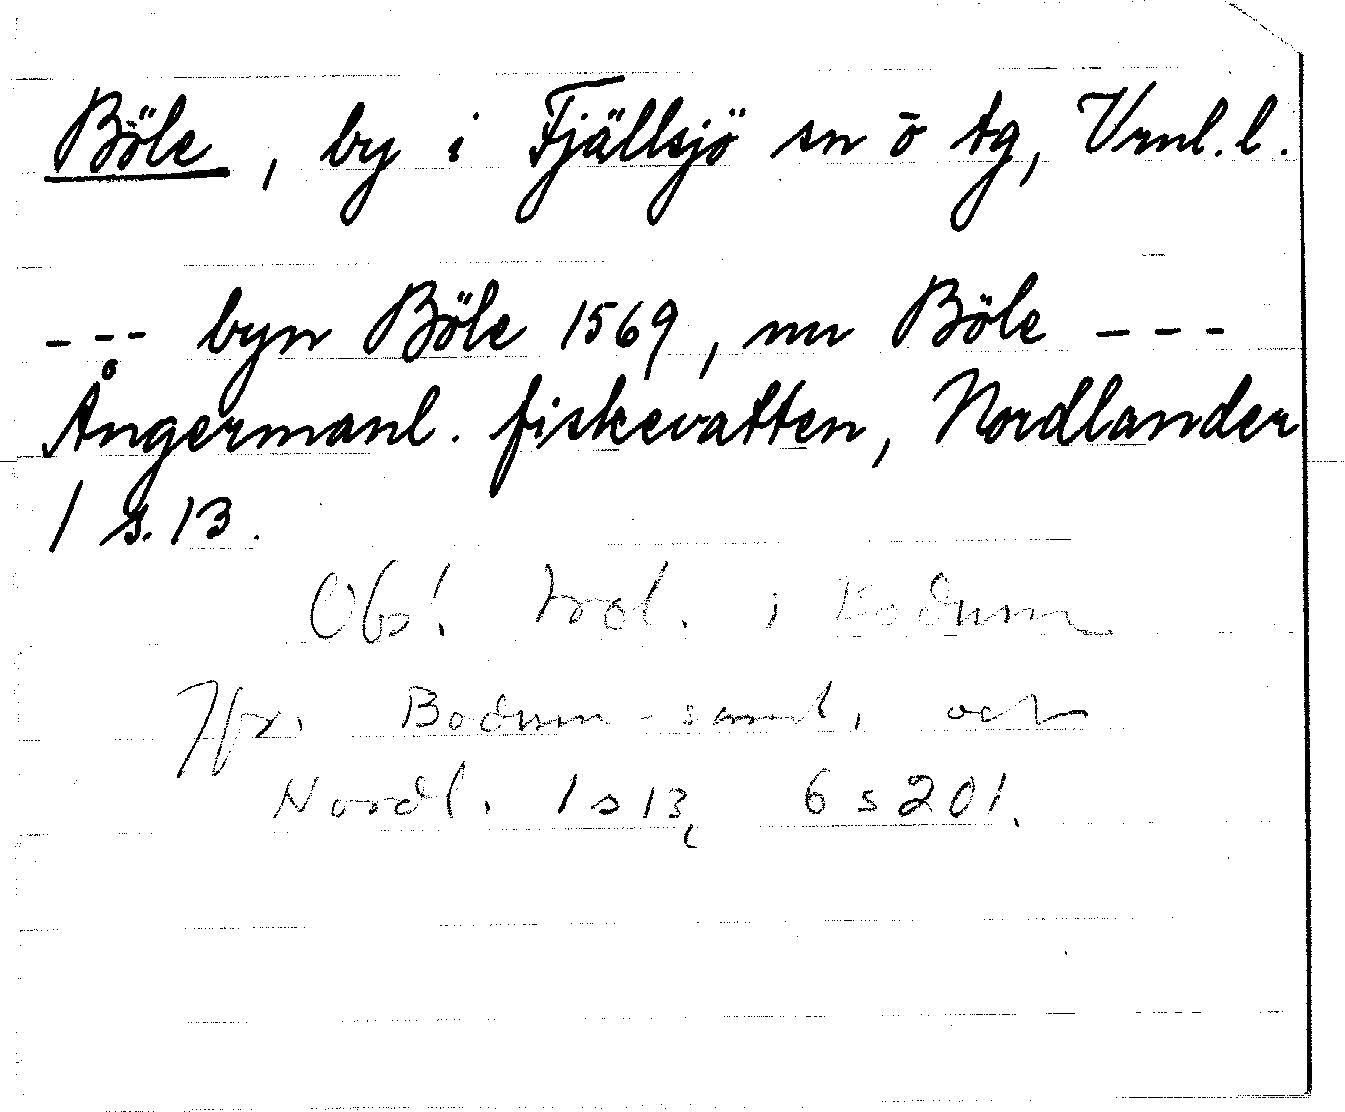 Böle, by i Fjällsjö sn ö tg, Vrml. l.
--- byn Böle 1569, nu Böle ---
Ångermanl. fiskevatten, Nordlander
1 s. 13.
Obs! trol. i Bodum
Jfr. Bodum-saml. och
Nordl. 1 s 13, 6 s 201.